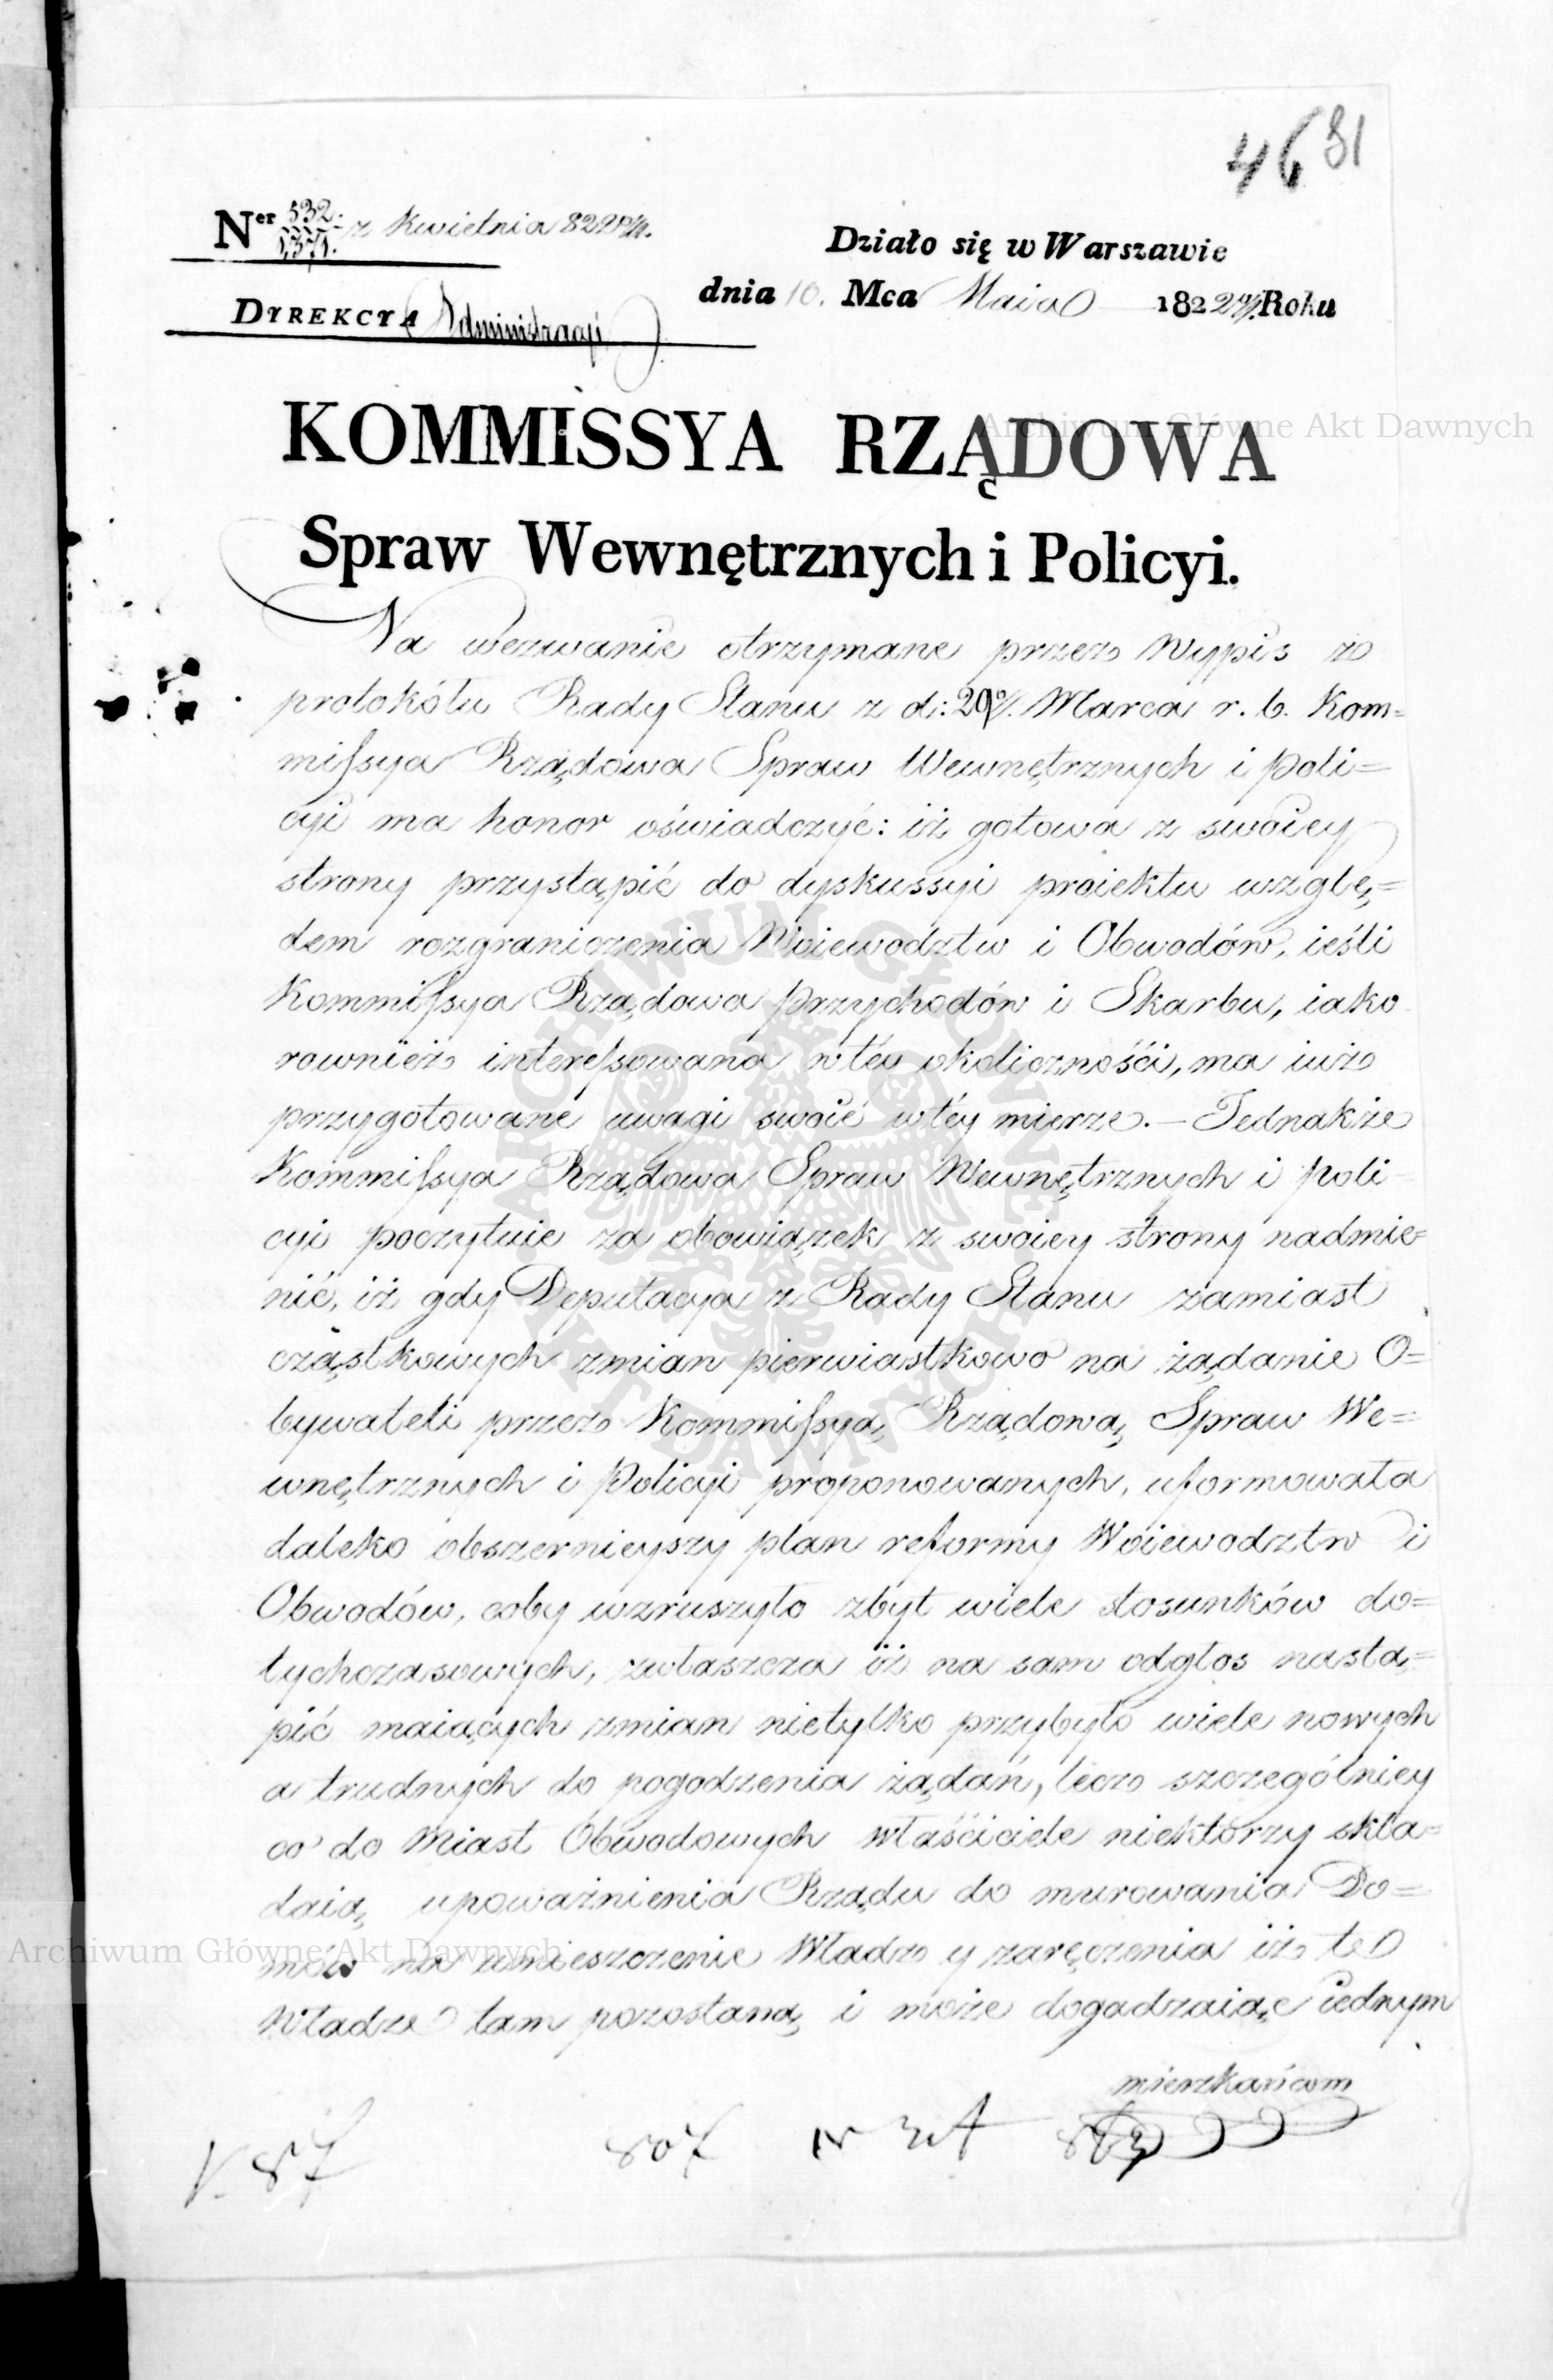 46 81
Ner 532. z Kwietnia 822 r.
1371.
Działo się w Warszawie
dnia 10. Mca Maia 1822 Roku
DYREKCYA Administracyi
KOMMISSYA RZĄDOWA
Spraw Wewnętrznych i Policyi.
Na wezwanie otrzymane przez Wypis z
protokółu Rady Stanu z d: 20 Marca r. b. Kom=
mifsya Rządowa Spraw Wewnętrznych i Poli=
cyi ma honor oświadczyć: iż gotowa z swoiey
strony przystąpić do dyskussyi proiektu wzglę=
dem rozgraniczenia Woiewodztw i Obwodów, ieśli
Kommifsya Rządowa Przychodów i Skarbu, iako
rownież interefsowana w téy okoliczności, ma iuż
przygotowane uwagi swoie w téy mierze. — Jednakże
Kommifsya Rządowa Spraw Wewnętrznych i Poli=
cyi poczytuie za obowiązek z swoiey strony nadmie=
nić, iż gdy Deputacya z Rady Stanu zamiast
cząstkowych zmian pierwiastkowo na żądanie O=
bywateli przez Kommifsyą Rządową Spraw We=
wnętrznych i Policyi proponowanych, uformowała
daleko obszernieyszy plan reformy Woiewodztw i
Obwodów, coby wzruszyło zbyt wiele stosunków do=
tychczasowych, zwłaszcza iż na sam odgłos nastą=
pić maiących zmian nietylko przybyło wiele nowych
a trudnych do pogodzenia żądań, lecz szczególniey
co do Miast Obwodowych właściciele niektórzy skła=
daią upoważnienia Rządu do murowania Do=
mów na umieszczenie Władz y zaręczenia iż te
Władze tam pozostaną i może dogadzaiąc iednym
mieszkańcom
V. 87
807
Archiwum Główne Akt Dawnych
Archiwum Główne Akt Dawnych
ARCHIWUM GŁÓWNE AKT DAWNYCH